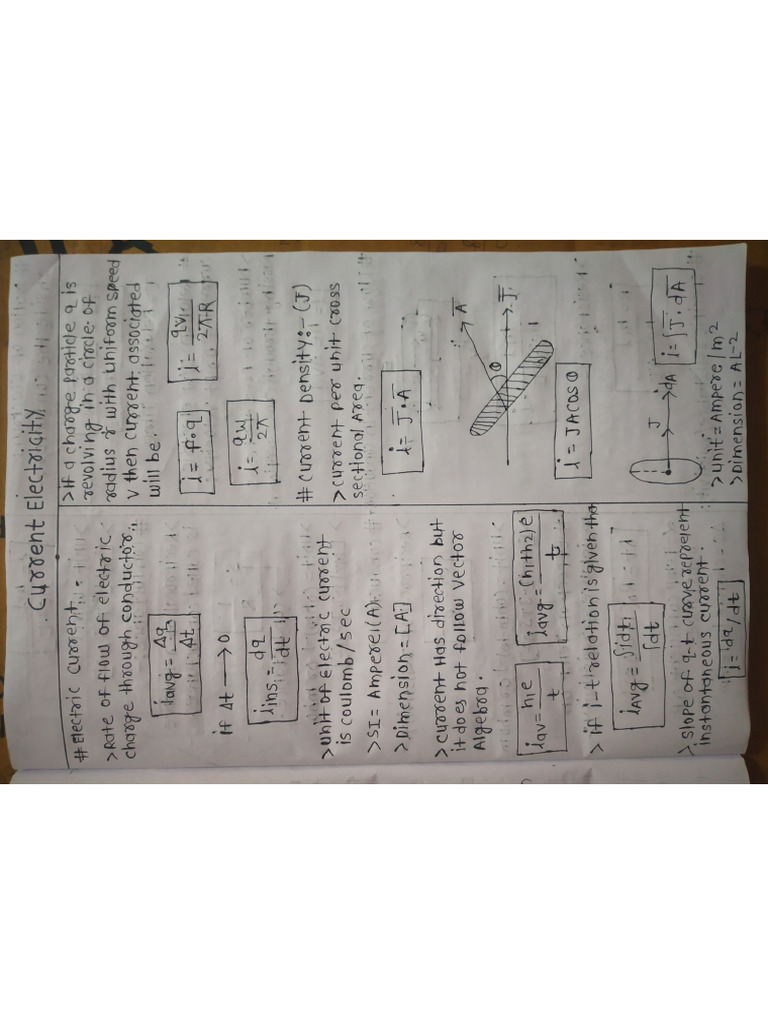 Current Electricity
# Electric Current :
> Rate of flow of electric
charge through conductor.
iavg = Δq / Δt
if Δt → 0
iins = dq / dt
> Unit of Electric current
is coulomb/sec
> SI = Ampere (A)
> Dimension = [A]
> Current Has direction but
it does not follow Vector
Algebra.
iav = n1e / t
iavg = (n1+n2)e / t
> if i-t relation is given tha
iAvg = ∫idt / ∫dt
> Slope of q-t curve represent
instantaneous current.
i = dq/dt
> If a charge particle q is
revolving in a circle of
radius r with uniform speed
v then current associated
will be.
i = f·q
i = qv / 2πR
i = qw / 2π
# Current Density :- (J)
> Current per unit cross
sectional Area.
i = J̅·A̅
A̅
θ
J̅
i = JA cos θ
J
dA
i = ∫J̅·dA̅
> Unit = Ampere/m²
> Dimension = AL-2